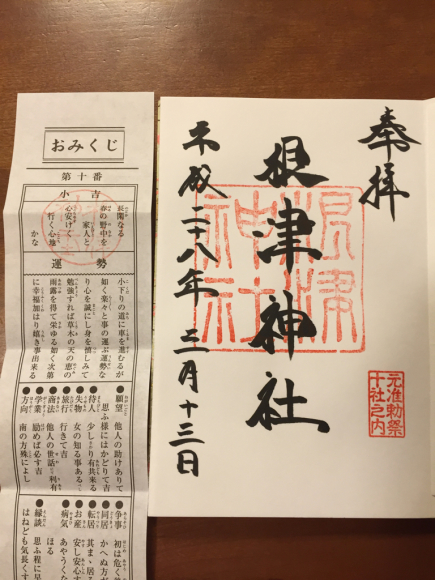 おみくじ
第十番
小吉
長閑なる
春の野中を
家人と
心安けく
行く心地
かな
運勢
小下りの道に車を進むるが
如く楽々と事の運ぶ運勢な
り心を誠にし身を慎しみて
勉強すれば草木の天の恵の
雨露を得て栄ゆる如く次第
に幸福加はり嬉き事出来る
●願望 他人の助けありて
思ふ様にはかどりて吉
●待人 少しさはり有共来る
●失物 女の知る事ある
●旅行 行きて吉
●商法 他人の世話で利有
●学業 励めば必ず吉
●方向 南の方殊によし
●争事 初は危く
●同居 かへぬ方が
●転居 其まゝ居
●お産 安し安心す
●病気 あやうくな
ほる
●縁談 思ふ程に早
はねども気長くす
奉拝
根津神社
平成二十八年三月十三日
根津
神社
元准勅祭
十社之内